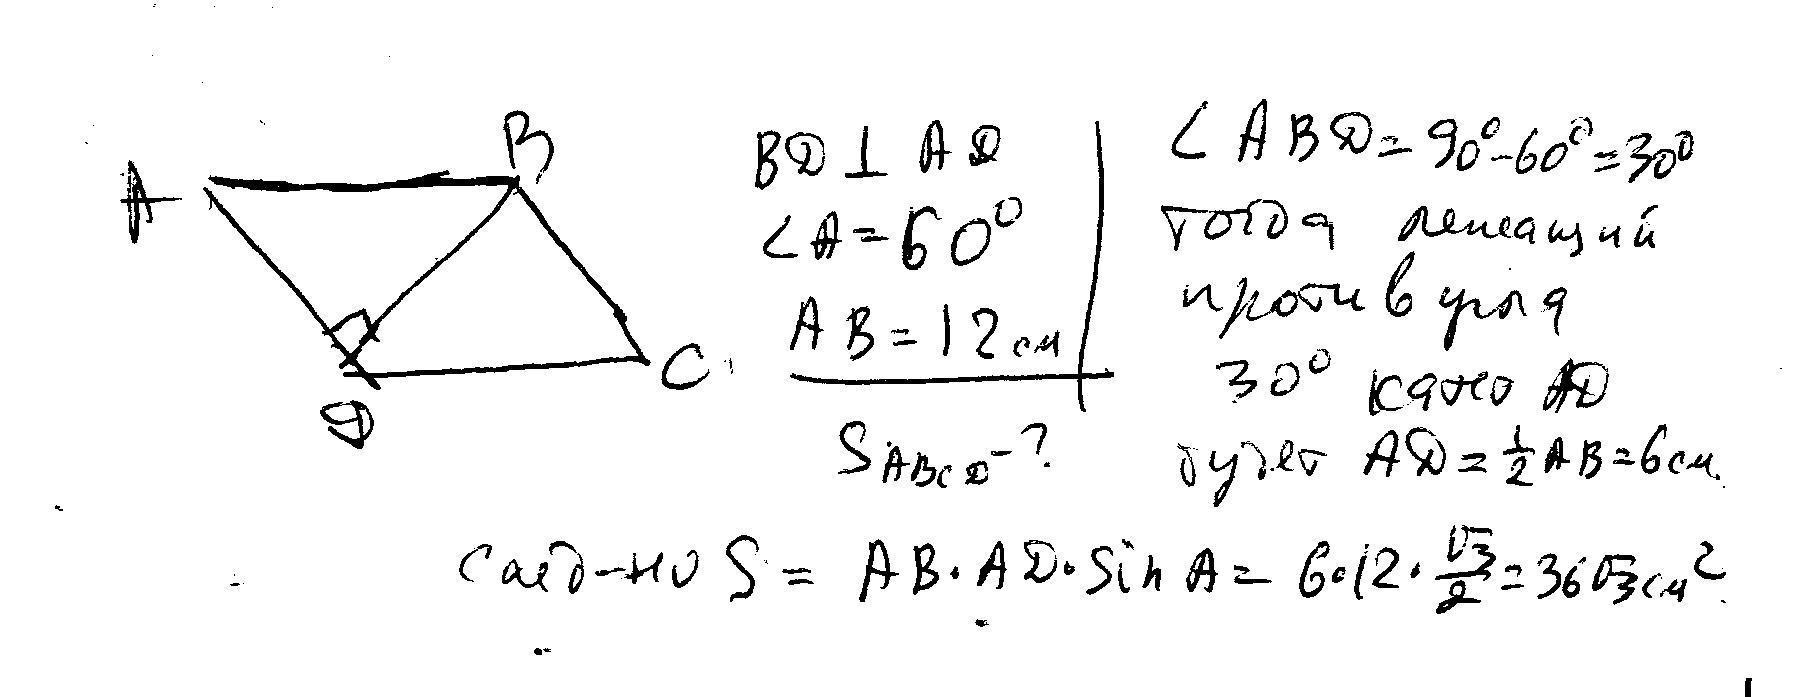 A
B
C
D
BD ⊥ AD
∠A = 60°
AB = 12 см
S ABCD - ?
∠ABD = 90° - 60° = 30°
тогда лежащий
против угла
30° катет AD
будет AD = 1/2 AB = 6 см
След-но S = AB · AD · Sin A = 6 · 12 · √3/2 = 36√3 см²